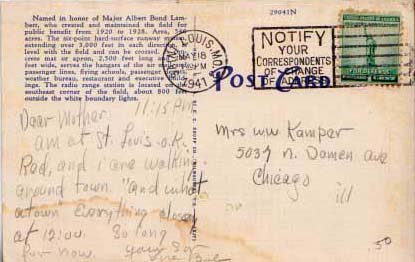 Named in honor of Major Albert Bond Lam-
bert, who created and maintained the field for
public benefit from 1920 to 1928. Area, 544
acres. The six-point hard-surface runway
extending over 3,000 feet in each direction,
level with the field and can be crossed.
crete mat or apron, 2,500 feet long and
feet wide, serves the hangars of the air
passenger lines, flying schools, passenger
weather bureau, restaurant and executive
ings. The radio range station is located
southeast corner of the field, about 800 feet
outside the white boundary lights.
29041N
ST. LOUIS, MO.
MAR 18
PM
1941
NOTIFY
YOUR
CORRESPONDENTS
OF CHANGE
OF ADDRESS
FOR DEFENSE
POST CARD
11:15 PM
Dear Mother
am at St. Louis o.k.
Rod, and i are walking
around town. "and what
a town" Everything closes
at 12:00. So long
for now. Your Son
Mrs WW Kamper
5037 N. Damen ave
Chicago
ill
.50